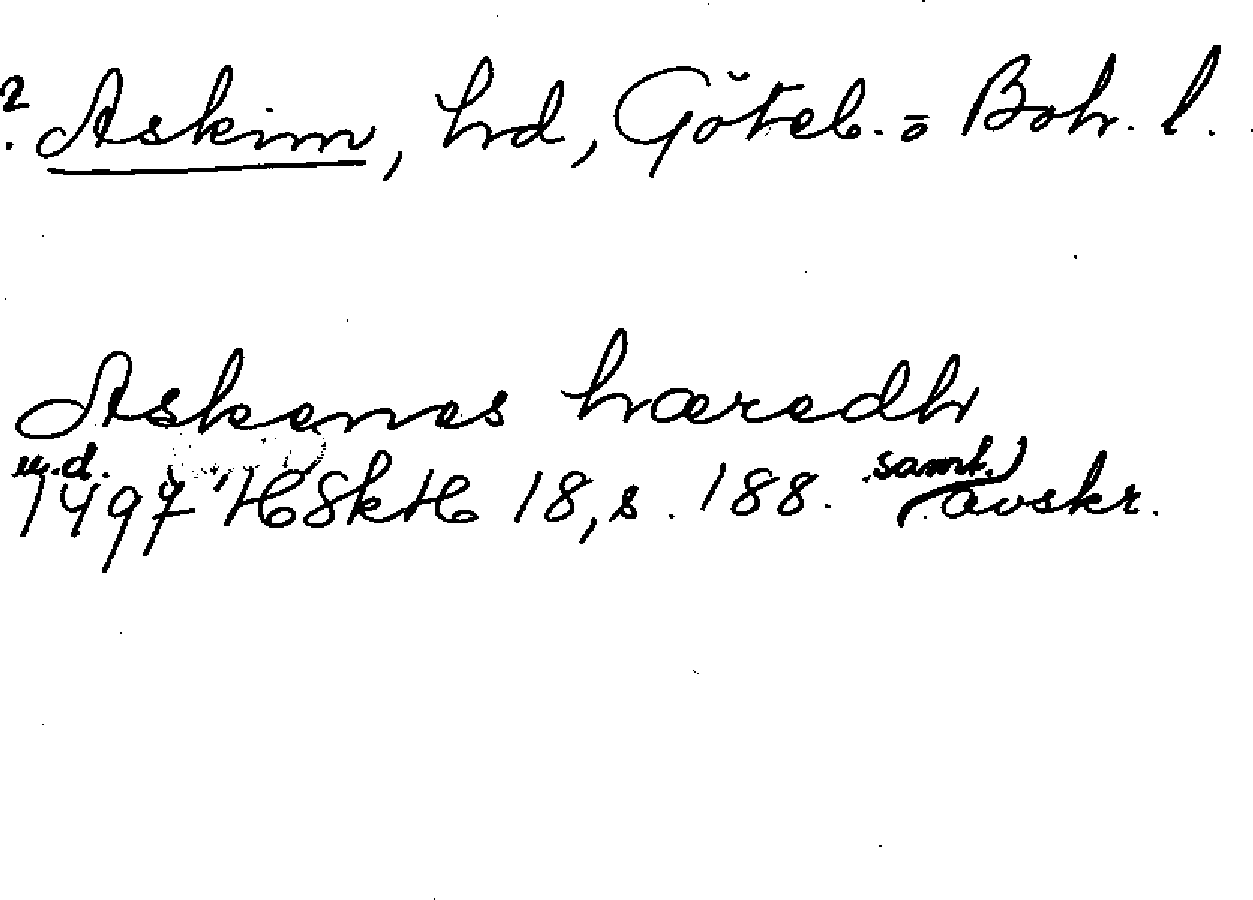 2. Askim, hrd, Göteb. o Boh. l.
Askenes hæredh
u.d.
1497 HSkH 18, s. 188. samt.) avskr.